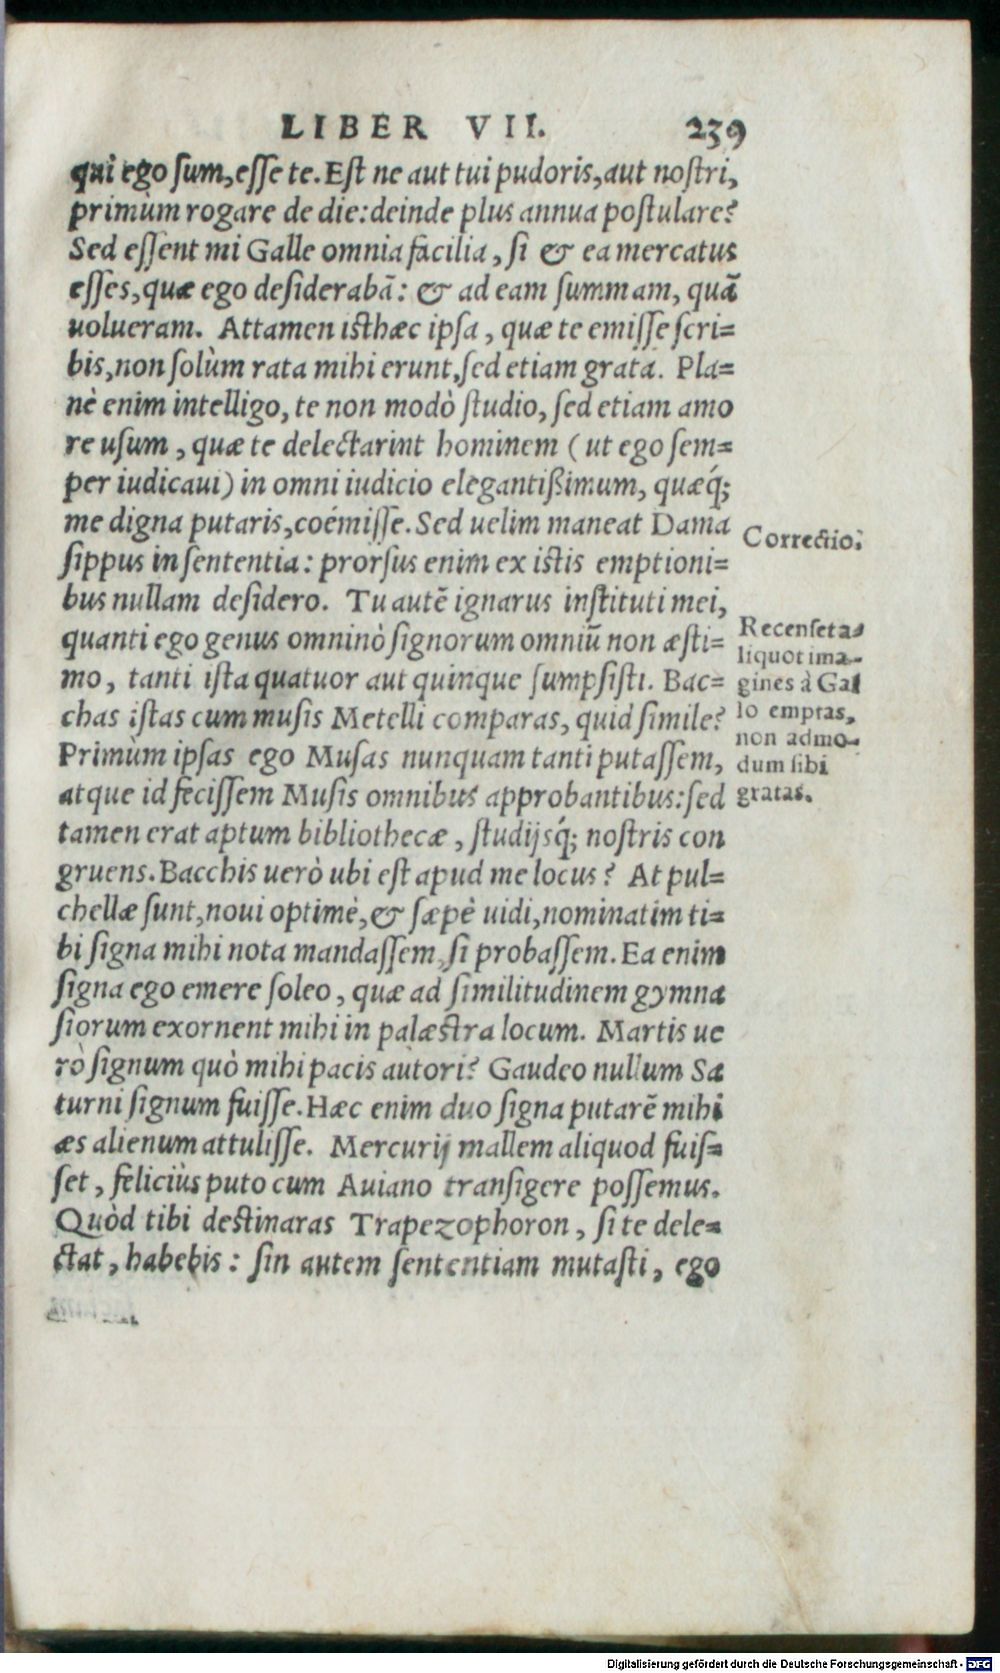 LIBER VII. 239
qui ego sum, esse te. Est ne aut tui pudoris, aut nostri,
primùm rogare de die: deinde plus annua postulare?
Sed essent mi Galle omnia facilia, si & ea mercatus
esses, quæ ego desiderabā: & ad eam summam, quā
uolueram. Attamen isthæc ipsa, quæ te emisse scri=
bis, non solùm rata mihi erunt, sed etiam grata. Pla=
nè enim intelligo, te non modò studio, sed etiam amo
re usum, quæ te delectarint hominem (ut ego sem=
per iudicaui) in omni iudicio elegantißimum, quæq́;
me digna putaris, coémisse. Sed uelim maneat Dama
sippus in sententia: prorsus enim ex istis emptioni=
bus nullam desidero. Tu autē ignarus instituti mei,
quanti ego genus omninò signorum omniū non æsti=
mo, tanti ista quatuor aut quinque sumpsisti. Bac=
chas istas cum musis Metelli comparas, quid simile?
Primùm ipsas ego Musas nunquam tanti putassem,
atque id fecissem Musis omnibus approbantibus: sed
tamen erat aptum bibliothecæ, studijsq́; nostris con
gruens. Bacchis uerò ubi est apud me locus? At pul=
chellæ sunt, noui optimè, & sæpè uidi, nominatim ti=
bi signa mihi nota mandassem, si probassem. Ea enim
signa ego emere soleo, quæ ad similitudinem gymna
siorum exornent mihi in palæstra locum. Martis ue
rò signum quò mihi pacis autori? Gaudeo nullum Sa
turni signum fuisse. Hæc enim duo signa putarē mihi
æs alienum attulisse. Mercurij mallem aliquod fuis=
set, feliciùs puto cum Auiano transigere possemus.
Quòd tibi destinaras Trapezophoron, si te dele=
ctat, habebis: sin autem sententiam mutasti, ego
Correctio.
Recenset a=
liquot ima=
gines à Gal
lo emptas,
non admo=
dum sibi
gratas.
Digitalisierung gefördert durch die Deutsche Forschungsgemeinschaft - DFG